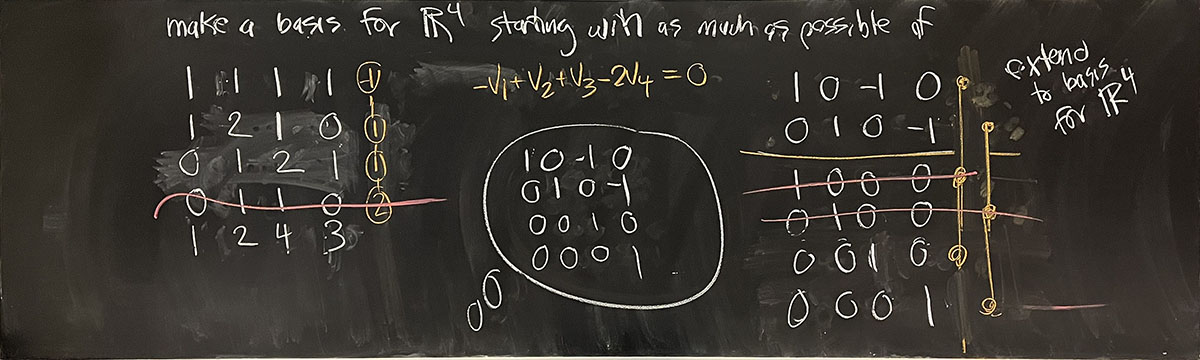 make a basis for ℝ⁴ starting with as much as possible of
1 1 1 1 -1
1 2 1 0 1
0 1 2 1 1
0 1 1 0 2
1 2 4 3
-V₁+V₂+V₃-2V₄=0
1 0 -1 0
0 1 0 -1
0 0 1 0
0 0 0 1
1 0 -1 0
0 1 0 -1
1 0 0 0
0 1 0 0
0 0 1 0
0 0 0 1
extend
to basis
for ℝ⁴